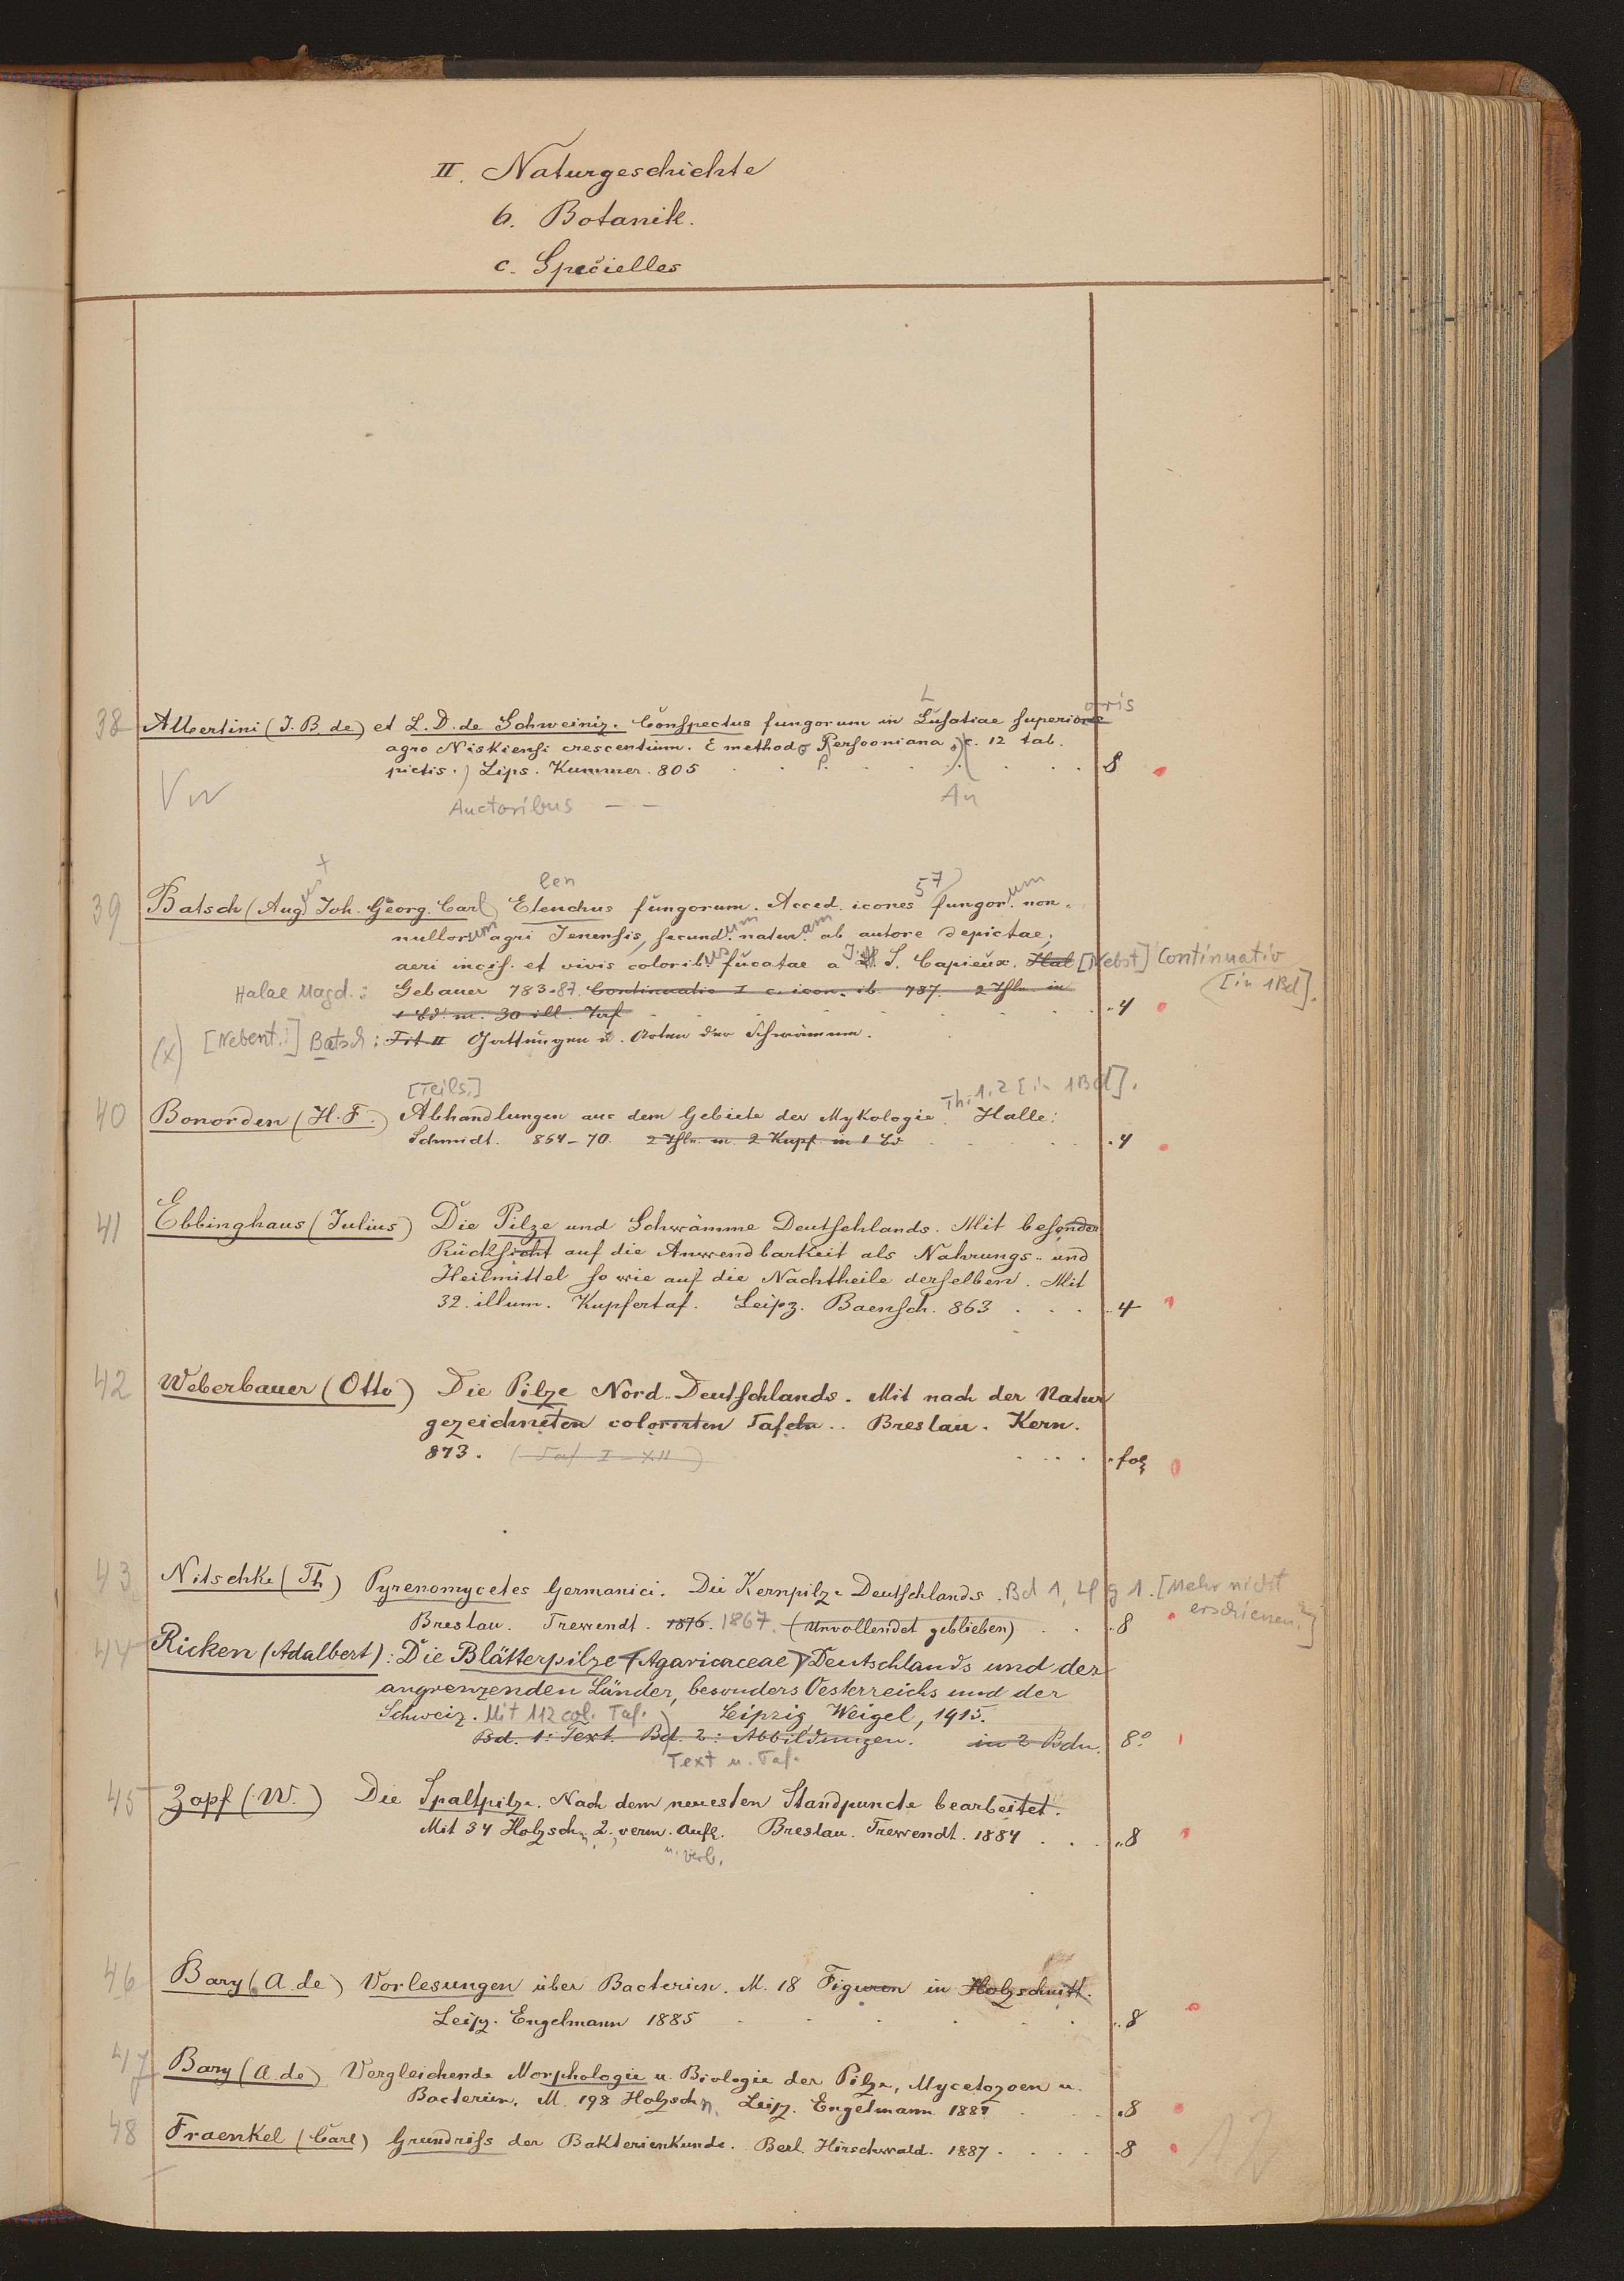 II. Naturgeschichte
b. Botanik.
c. Specielles
38 Albertini (J. B. de) et L. D. de Schweiniz. Conspectus fungorum in Lusatiae superioris
agro Niskiensi crescentium. E methodo Persooniana. c. 12 tab.
pictis.) Lips. Kummer. 805 8
Auctoribus — — An
39 Batsch (Aug. Joh. Georg. Carl) Elenchus fungorum. Acced. icones 57 fungorum non-
nullorum agri Jenensis, secundum naturam ab autore depictae;
aeri incis. et vivis coloribus fucatae a J. S. Capieux. Hal [Nebst] Continuatio
Halae Magd.: Gebauer 783-87. Continuatio I c. icon. ib. 787. 2 Thle. in [in 1 Bd].
1 Bd. m. 30 ill. Taf 4
(x) [Nebent.:] Batsch: Tit. II Gattungen u. Arten der Schwämme.
[Teils.] Th. 1. 2 [in 1 Bd].
40 Bonorden (H. F.) Abhandlungen aus dem Gebiete der Mykologie. Halle:
Schmidt. 864-70. 2 Thle. m. 2 Kupf. in 1 Bd 4
41 Ebbinghaus (Julius) Die Pilze und Schwämme Deutschlands. Mit besonder
Rücksicht auf die Anwendbarkeit als Nahrungs- und
Heilmittel so wie auf die Nachtheile derselben. Mit
32. illum. Kupfertaf. Leipz. Baensch. 863 4
42 Weberbauer (Otto) Die Pilze Nord-Deutschlands. Mit nach der Natur
gezeichneten colorirten Tafeln. Breslau. Kern.
873. (Taf I-XII) fol
43 Nitschke (Th) Pyrenomycetes Germanici. Die Kernpilze Deutschlands. Bd 1, Lfg 1. [Mehr nicht
Breslau. Trewendt. 1876. 1867. (Unvollendet geblieben) 8 erschienen.]
44 Ricken (Adalbert): Die Blätterpilze (Agaricaceae) Deutschlands und der
angrenzenden Länder, besonders Oesterreichs und der
Schweiz. Mit 112 col. Taf. Leipzig Weigel, 1915.
Bd. 1: Text. Bd. 2: Abbildungen. in 2 Bdn. 8°
Text u. Taf.
45 Zopf (W.) Die Spaltpilze. Nach dem neuesten Standpuncte bearbeitet.
Mit 34 Holzschn. 2. verm. Aufl. Breslau. Trewendt. 1884 8
u. verb.
46 Bary (A. de) Vorlesungen über Bacterien. M. 18 Figuren in Holzschnitt.
Leipz. Engelmann 1885 8
47 Bary (A. de) Vergleichende Morphologie u. Biologie der Pilze, Mycetozoen u.
Bacterien. M. 198 Holzschn. Leipz. Engelmann 1884 8
48 Fraenkel (Carl) Grundriss der Bakterienkunde. Berl. Hirschwald. 1887. 8